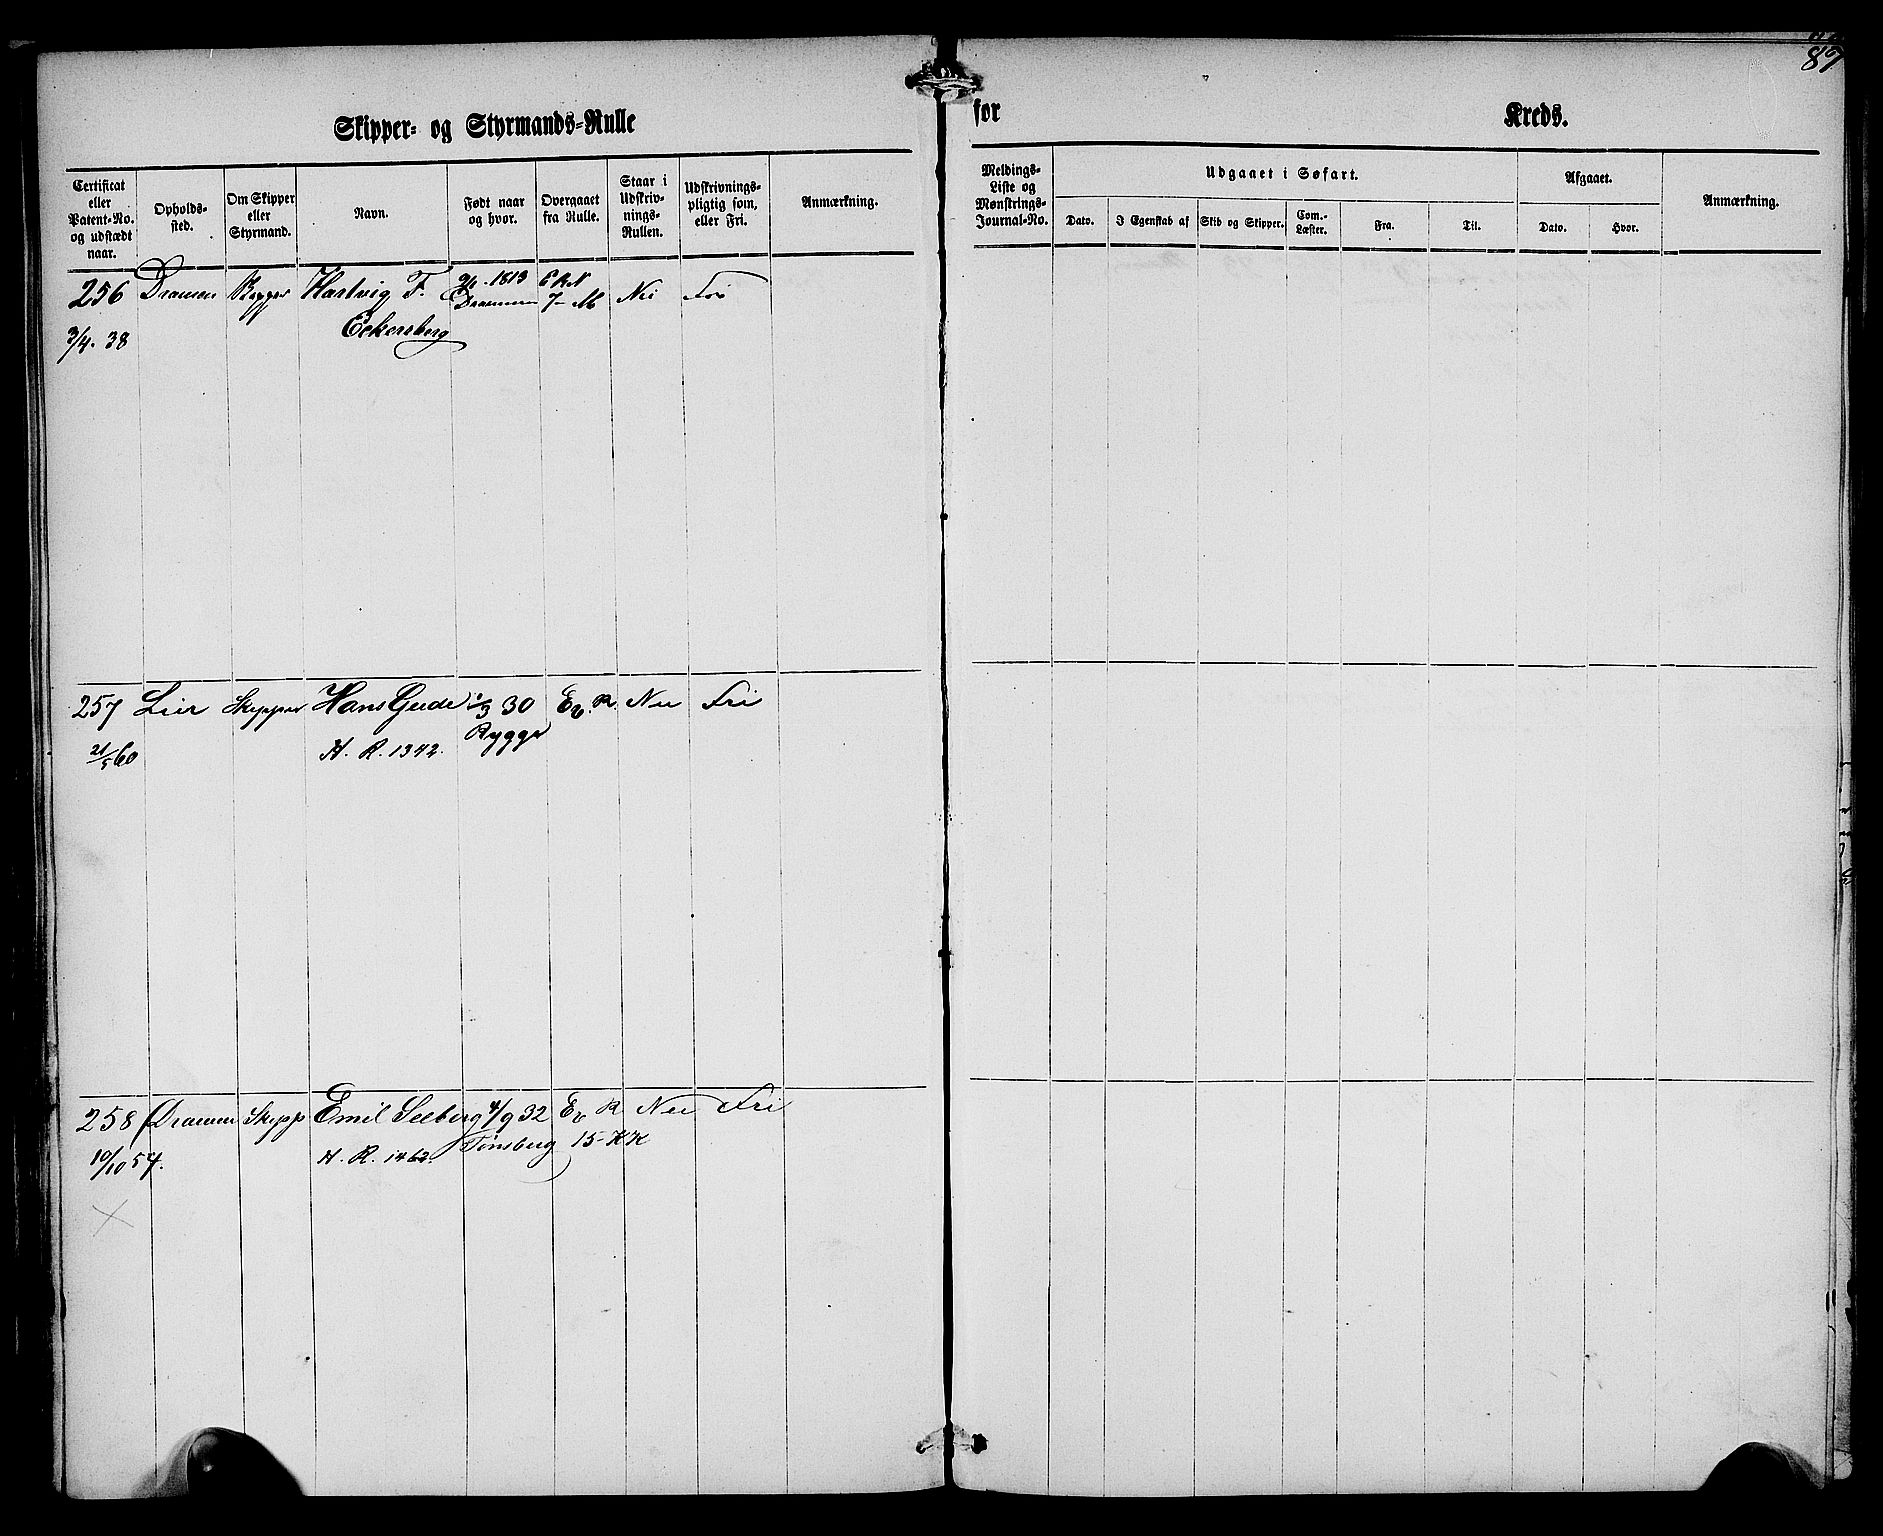 87
Skipper- og Styrmands-Rulle for Kreds.
Certificat eller Patent-No. og udstædt naar.
Opholds-sted.
Om Skipper eller Styrmand.
Navn.
Født naar og hvor.
Overgaaet fra Rulle.
Staar i Udskriv-nings-Rullen.
Udskrivnings-pligtig som, eller Fri.
Anmærkning.
Meldings-Liste og Mønstrings-Journal-No.
Udgaaet i Søfart.
Dato.
I Egenskab af
Skib og Skipper.
Com.-Læster.
Fra.
Til.
Afgaaet.
Dato.
Hvor.
Anmærkning.
256 Dramen Hartvig F. 1813 E R N Nei Fri
3/4. 38 Eckersberg Drammen 7- M
257 Lier Skipper Hans Gude 1/3 30 Ev. R. Nei Fri
21/5 60 H. R. 1342. Rygge
258 Dramen Skipp Emil Seeberg 4/9 32 Ev R Nei Fri
10/10 54. H. R. 1462. Tønsberg 15- KK